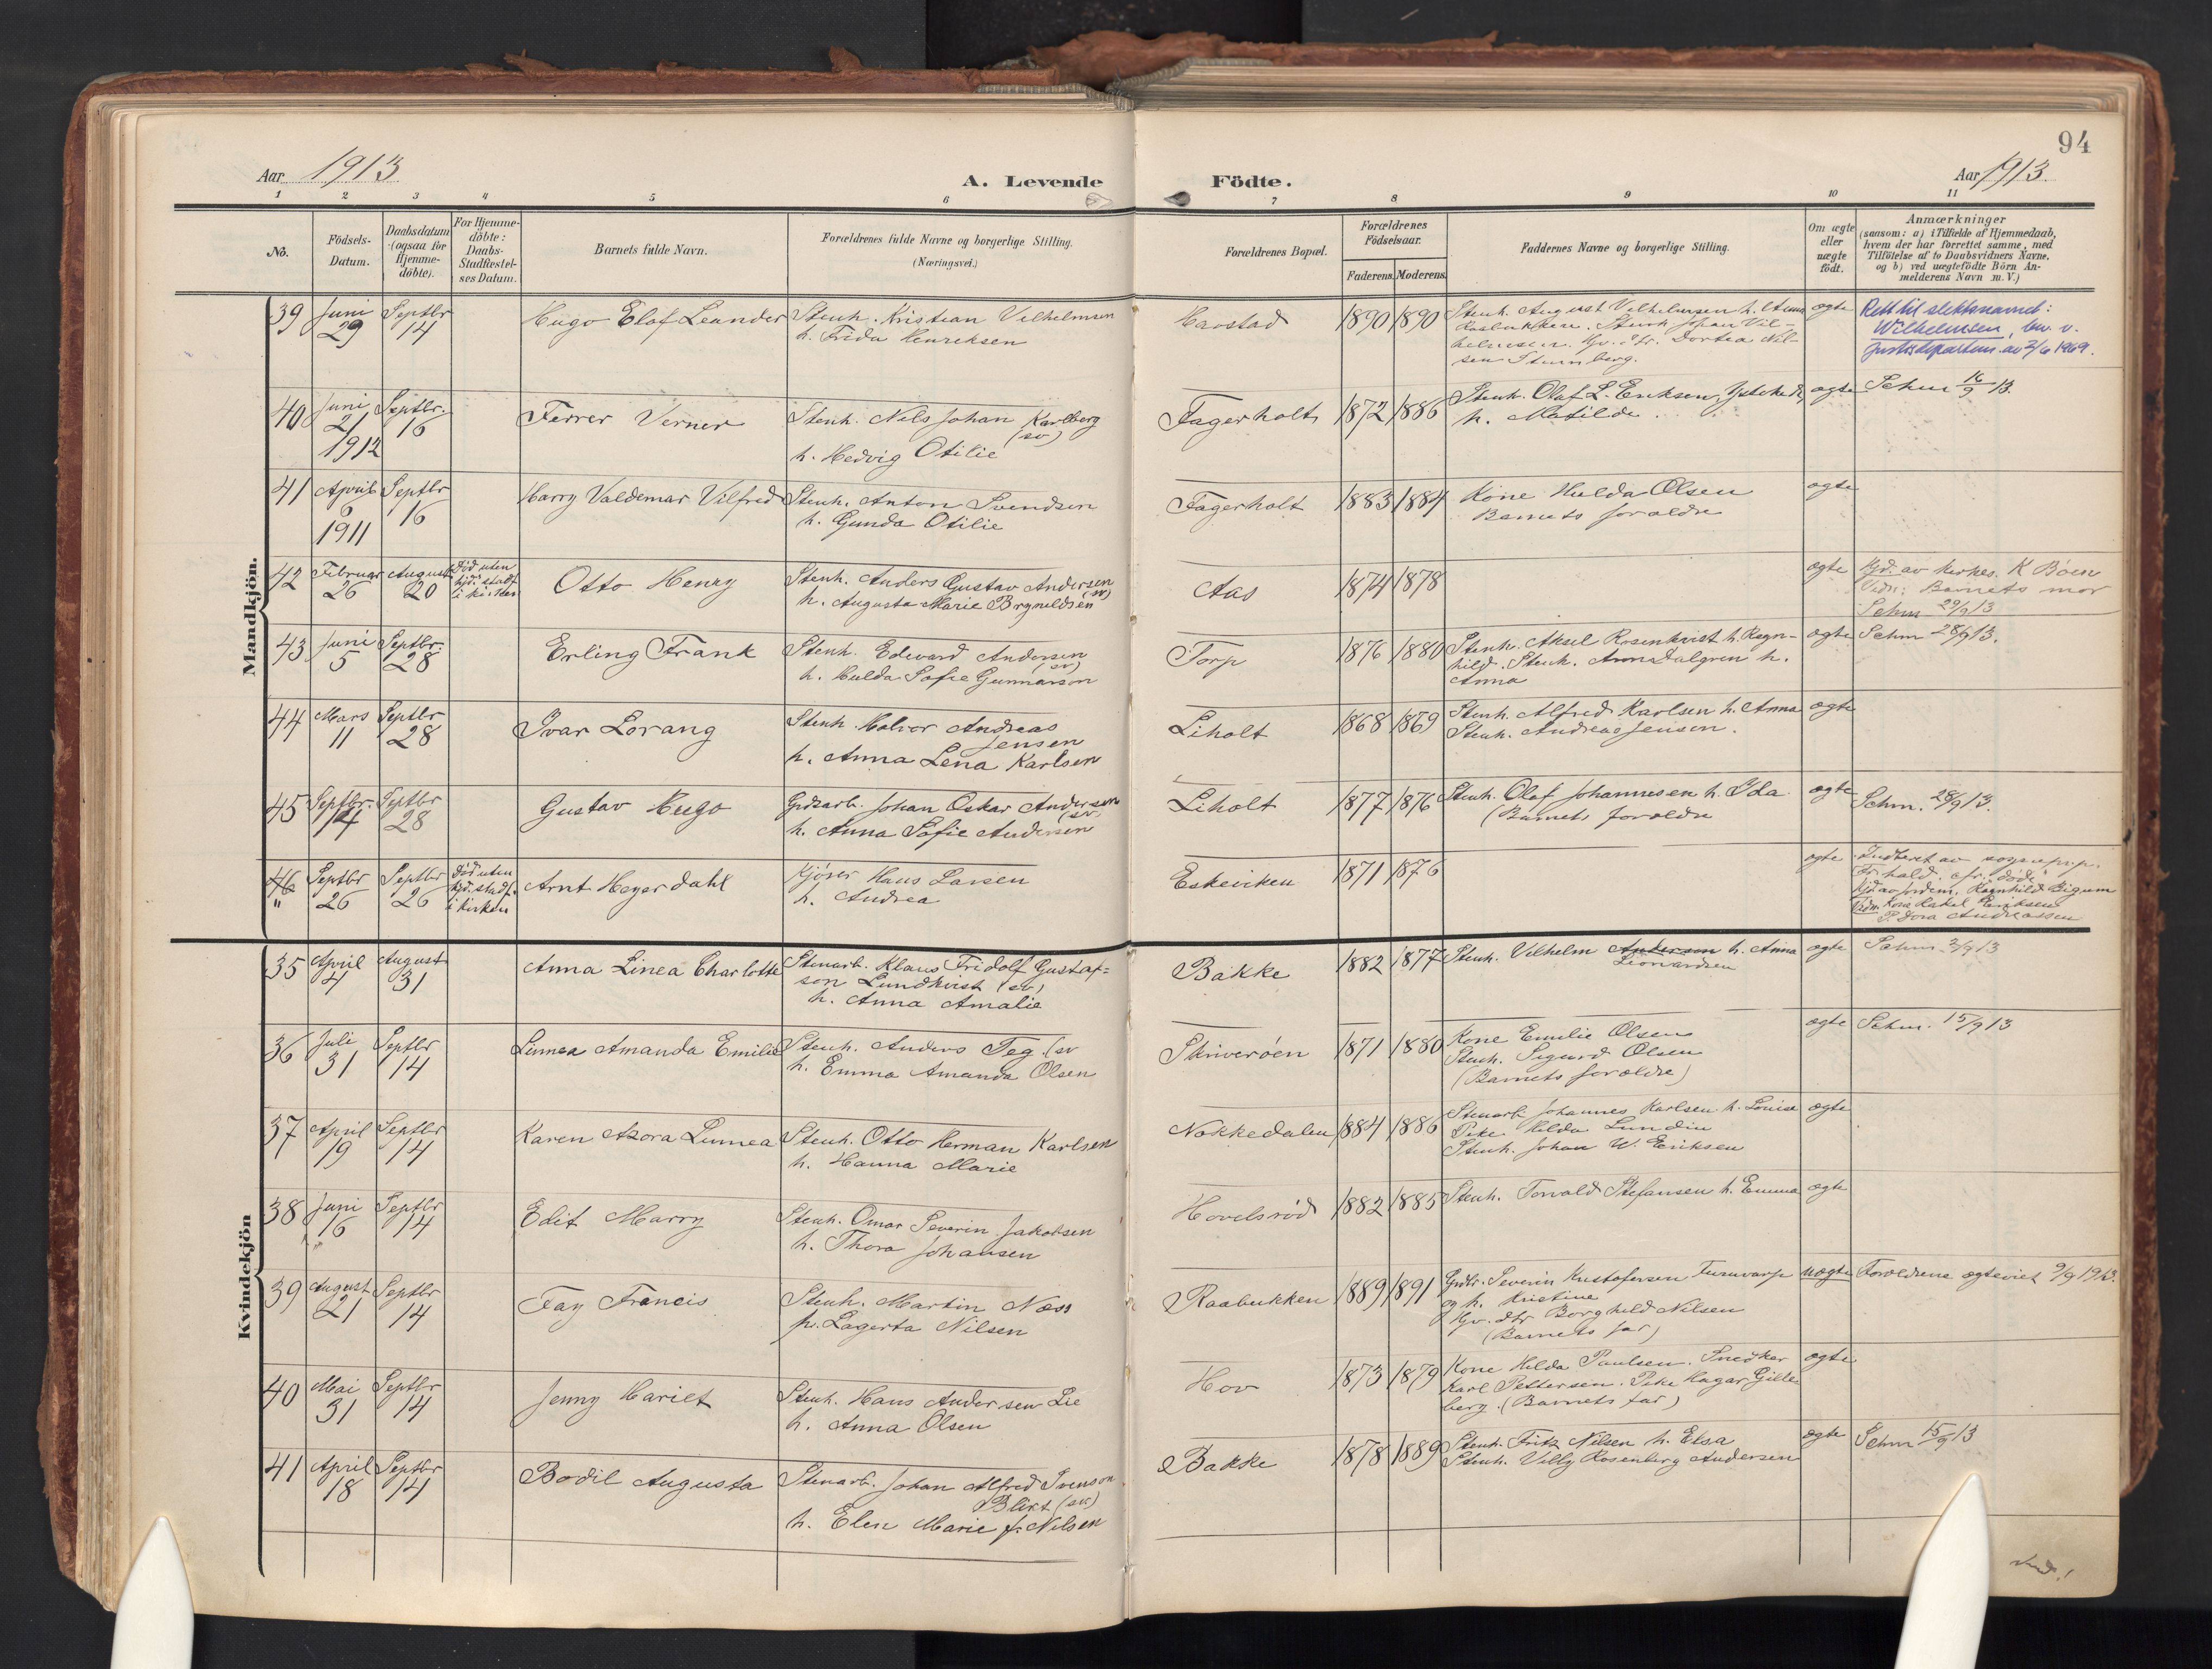 94
Aar 1913
A. Levende
Födte.
Aar 1913.
1 2 3 4 5 6 7 8 9 10 11
No.
Födsels-
Datum.
Daabsdatum
(ogsaa for
Hjemme-
döbte).
For Hjemme-
döbte:
Daabs-
Stadfæstel-
ses Datum.
Barnets fulde Navn.
Forældrenes fulde Navne og borgerlige Stilling.
(Næringsvei.)
Forældrenes Bopæl.
Forældrenes
Födselsaar.
Faderens. Moderens.
Faddernes Navne og borgerlig Stilling.
Om ægte
eller
uægte
födt.
Anmærkninger
(saasom: a) i Tilfælde af Hjemmedaab,
hvem der har forrettet samme, med
Tilföielse af to Daabsvidners Navne.
og b) ved uægtefödte Börn An-
melderens Navn m. V.)
Mandkjön.
39 Juni 29 Septbr 14
Hugo Elof Leander
Stenh. Kristian Vilhelmsen
h. Frida Henriksen
Havstad
1890 1890
Stenh. August Vilhelmsen h. Anna
Raabukken. Stenh Johan Vil-
helmsen. Gv. dtr. Dortea Nil-
sen Stumberg.
ægte
Rett til slektsnavnet:
Wilhelmsen, bev. v.
Justisdepartem. av 2/6 1969.
40 Juni 21 1912 Septbr. 16
Ferrer Verner
Stenh. Nils Johan Karlberg
(sv)
h. Hedvig Otilie
Fagerholt
1872 1886
Stenh. Olaf L. Eriksen,
h. Matilde.
ægte
Schm 16/9 13.
41 April 6 1911 Septbr 16
Harry Valdemar Vilfred
Stenh. Anton Svendsen
h. Gunda Otilie
Fagerholt
1883 1884
Kone Hulda Olsen
Barnets forældre
ægte
42 Februar 26 August 20
Död uten
hjd. stadf.
i kirken
Otto Henry
Stenh. Anders Gustav Andersen
(sv)
h. Augusta Marie Brynildsen
Aas
1874 1878
ægte
Hjd. av kirkes. K Böen
Vidn: Barnets mor
Schm 29/9 13
43 Juni 5 Septbr. 28
Erling Frank
Stenh. Edevard Andersen
(sv)
h. Hulda Sofie Gunnarson
Torp
1876 1880
Stenh. Aksel Rosenkvist h. Ragn-
hild. Stenh. Aron Dalgren h.
Anna
ægte
Schm 28/9 13.
44 Mars 11 Septbr 28
Ivar Lorang
Stenh. Halvor Andreas
Jensen
h. Anna Lena Karlsen
Liholt
1868 1869
Stenh. Alfred Karlsen h. Anna
Stenh. Andreas Jensen.
ægte
45 Septbr. 14 Septbr 28
Gustav Hugo
Grdsarb. Johan Oskar Andersen
(sv)
h. Anna Sofie Andersen
Liholt
1877 1876
Stenh. Olaf Johannesen h. Ida
(Barnets forældre
ægte
Schm. 28/9 13.
46 Septbr 26 Septbr 26
Död uten
hjd. stadf.
i kirken
Arnt Heyerdahl
Kjörer Hans Larsen
h. Andrea
Eskeviken
1871 1876
ægte
Indført av sogneprp.
Fr.hald. cfr. döde
Hjd av jordem. Ragnhild Bigum
Vidn. Kone Rakel Eriksen
P. Dora Andreassen
Kvindekjön
35 April 4 August 31
Anna Linea Charlotte
Stenarb. Klaus Fridolf Gustaf-
son Lundkvist (sv)
h. Anna Amalie
Bakke
1882 1877
Stenh. Vilhelm Andersen h. Anna
Leonardsen
ægte
Schm 2/9 13
36 Juli 31 Septbr 14
Linnea Amanda Emilie
Stenh. Anders Teg (sv
h. Emma Amanda Olsen
Skriverøen
1871 1880
Kone Emilie Olsen
Stenh. Sigurd Olsen
(Barnets forældre)
ægte
Schm. 15/9 13
37 April 19 Septbr 14
Karen Azora Linnea
Stenh. Otto Herman Karlsen
h. Hanna Marie
Nokkedalen
1884 1886
Stenarb Johannes Karlsen h. Lovise
Pike Hilda Lundin
Stenh. Johan W. Eriksen
ægte
38 Juni 16 Septbr 14
Edit Marry
Stenh. Omar Severin Jakobsen
h. Thora Johansen
Hovelsrød
1882 1885
Stenh. Torvald Stefansen h. Emma
ægte
39 August 21 Septbr 14
Fay Francis
Stenh. Martin Næss
p. Lagerta Nilsen
Raabukken
1889 1891
Grdbr. Severin Kristofersen
og h. Kristine
Gv. dtr Borghild Nilsen
(Barnets far)
uægte
Forældrene ægteviet 9/9 1913.
40 Mai 31 Septbr 14
Jenny Hariet
Stenh. Hans Andersen Lie
h. Anna Olsen
Hov
1873 1879
Kone Hilda Paulsen. Snedker
Karl Pettersen. Pike Hagar Gille-
berg. (Barnets far)
ægte
41 April 18 Septbr 14
Bodil Augusta
Stenarb. Johan Alfred Svenson
Blixt (sv)
h. Elen Marie f. Nilsen
Bakke
1878 1889
Stenh. Fritz Nilsen h. Elsa
Stenh. Villy Rosenberg Andersen
ægte
Schm 15/9 13
Vend!